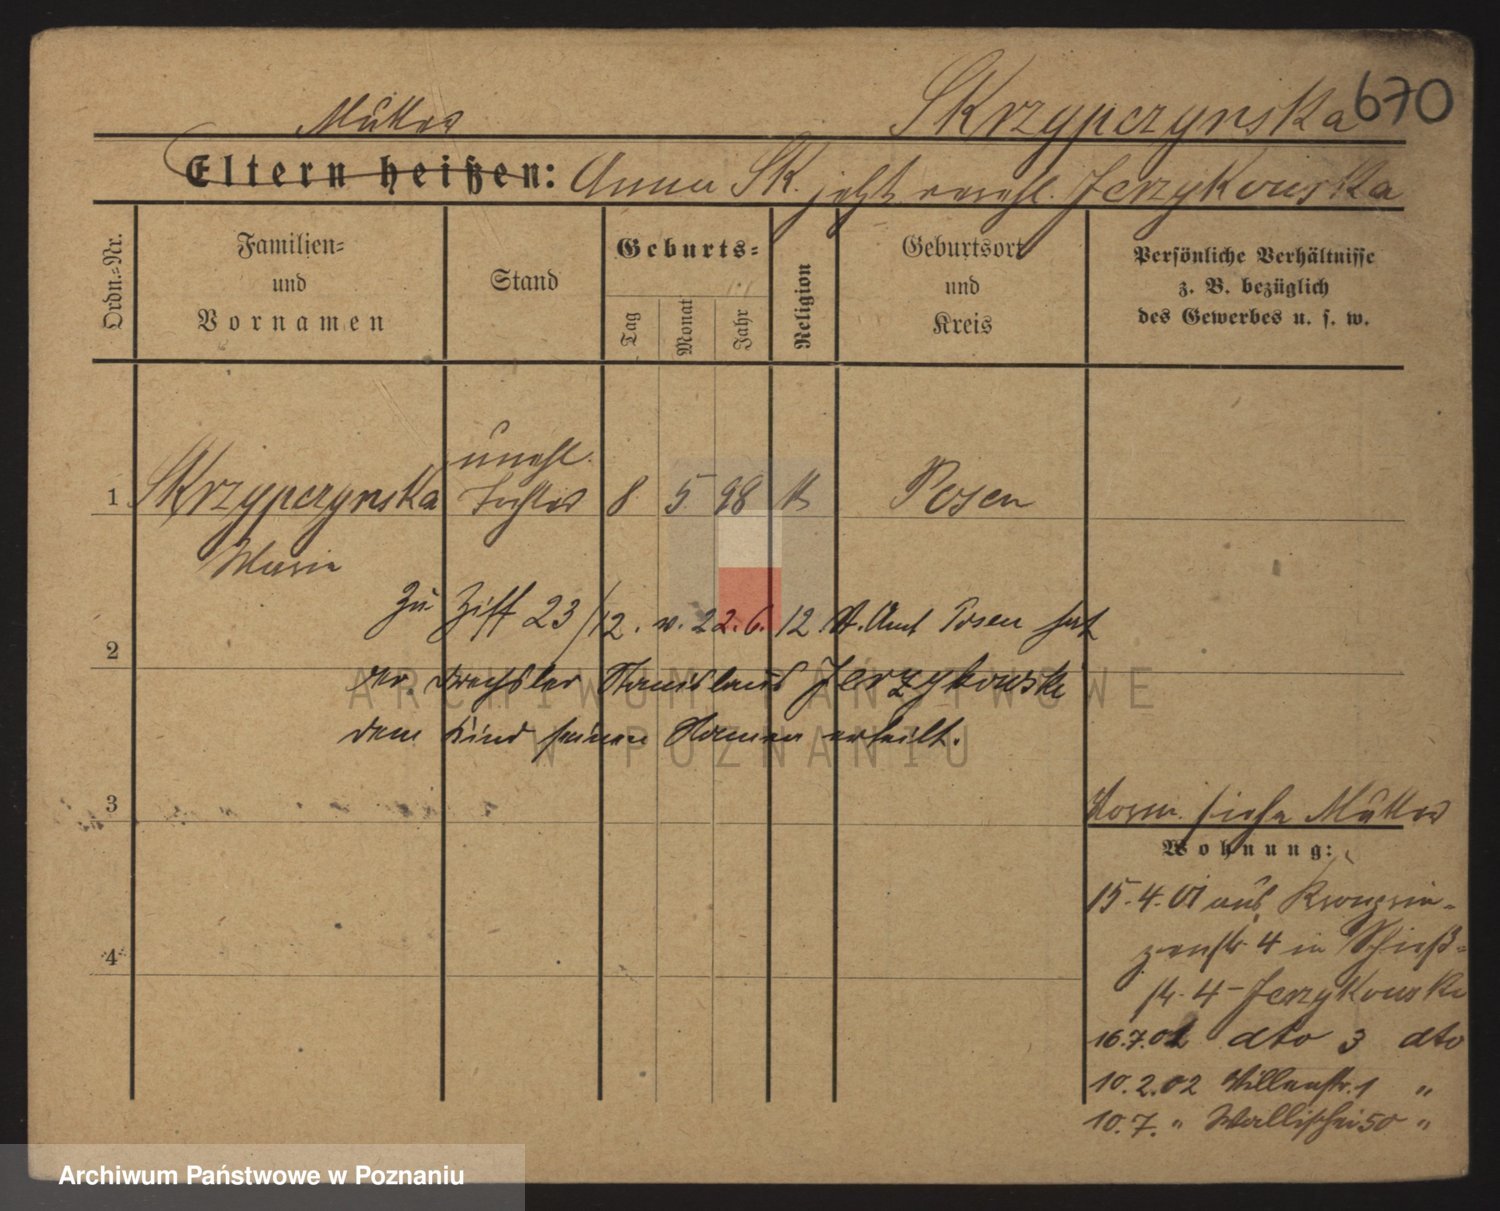 Skrzypczynska 670
Mutter
Eltern heißen: Anna Sk. jetzt verehl. Jerzykowska
Ordn.-Nr.
Familien-
und
Vornamen
Stand
Geburts-
Tag
Monat
Jahr
Religion
Geburtsort
und
Kreis
Persönliche Verhältnisse
z. B. bezüglich
des Gewerbes u. s. w.
unehl.
1 Skrzypczynska Tochter 8 5 98 k Posen
Marie
Zu Ziff 23/12. v. 22.6.12 St. Amt Posen hat
2
der Drechsler Stanislaus Jerzykowski
dem Kind seinen Namen erteilt.
3
Norm. siehe Mutter
Wohnung:
15.4.01 aus Kronprin-
zenstr 4 in Schieß-
4
str. 4 - Jerzykowski
16.7.01 dto 3 dto
10.2.02 Villenstr. 1 "
10.7. " Wallischei 50 "
ARCHIWUM PAŃSTWOWE
W POZNANIU
Archiwum Państwowe w Poznaniu